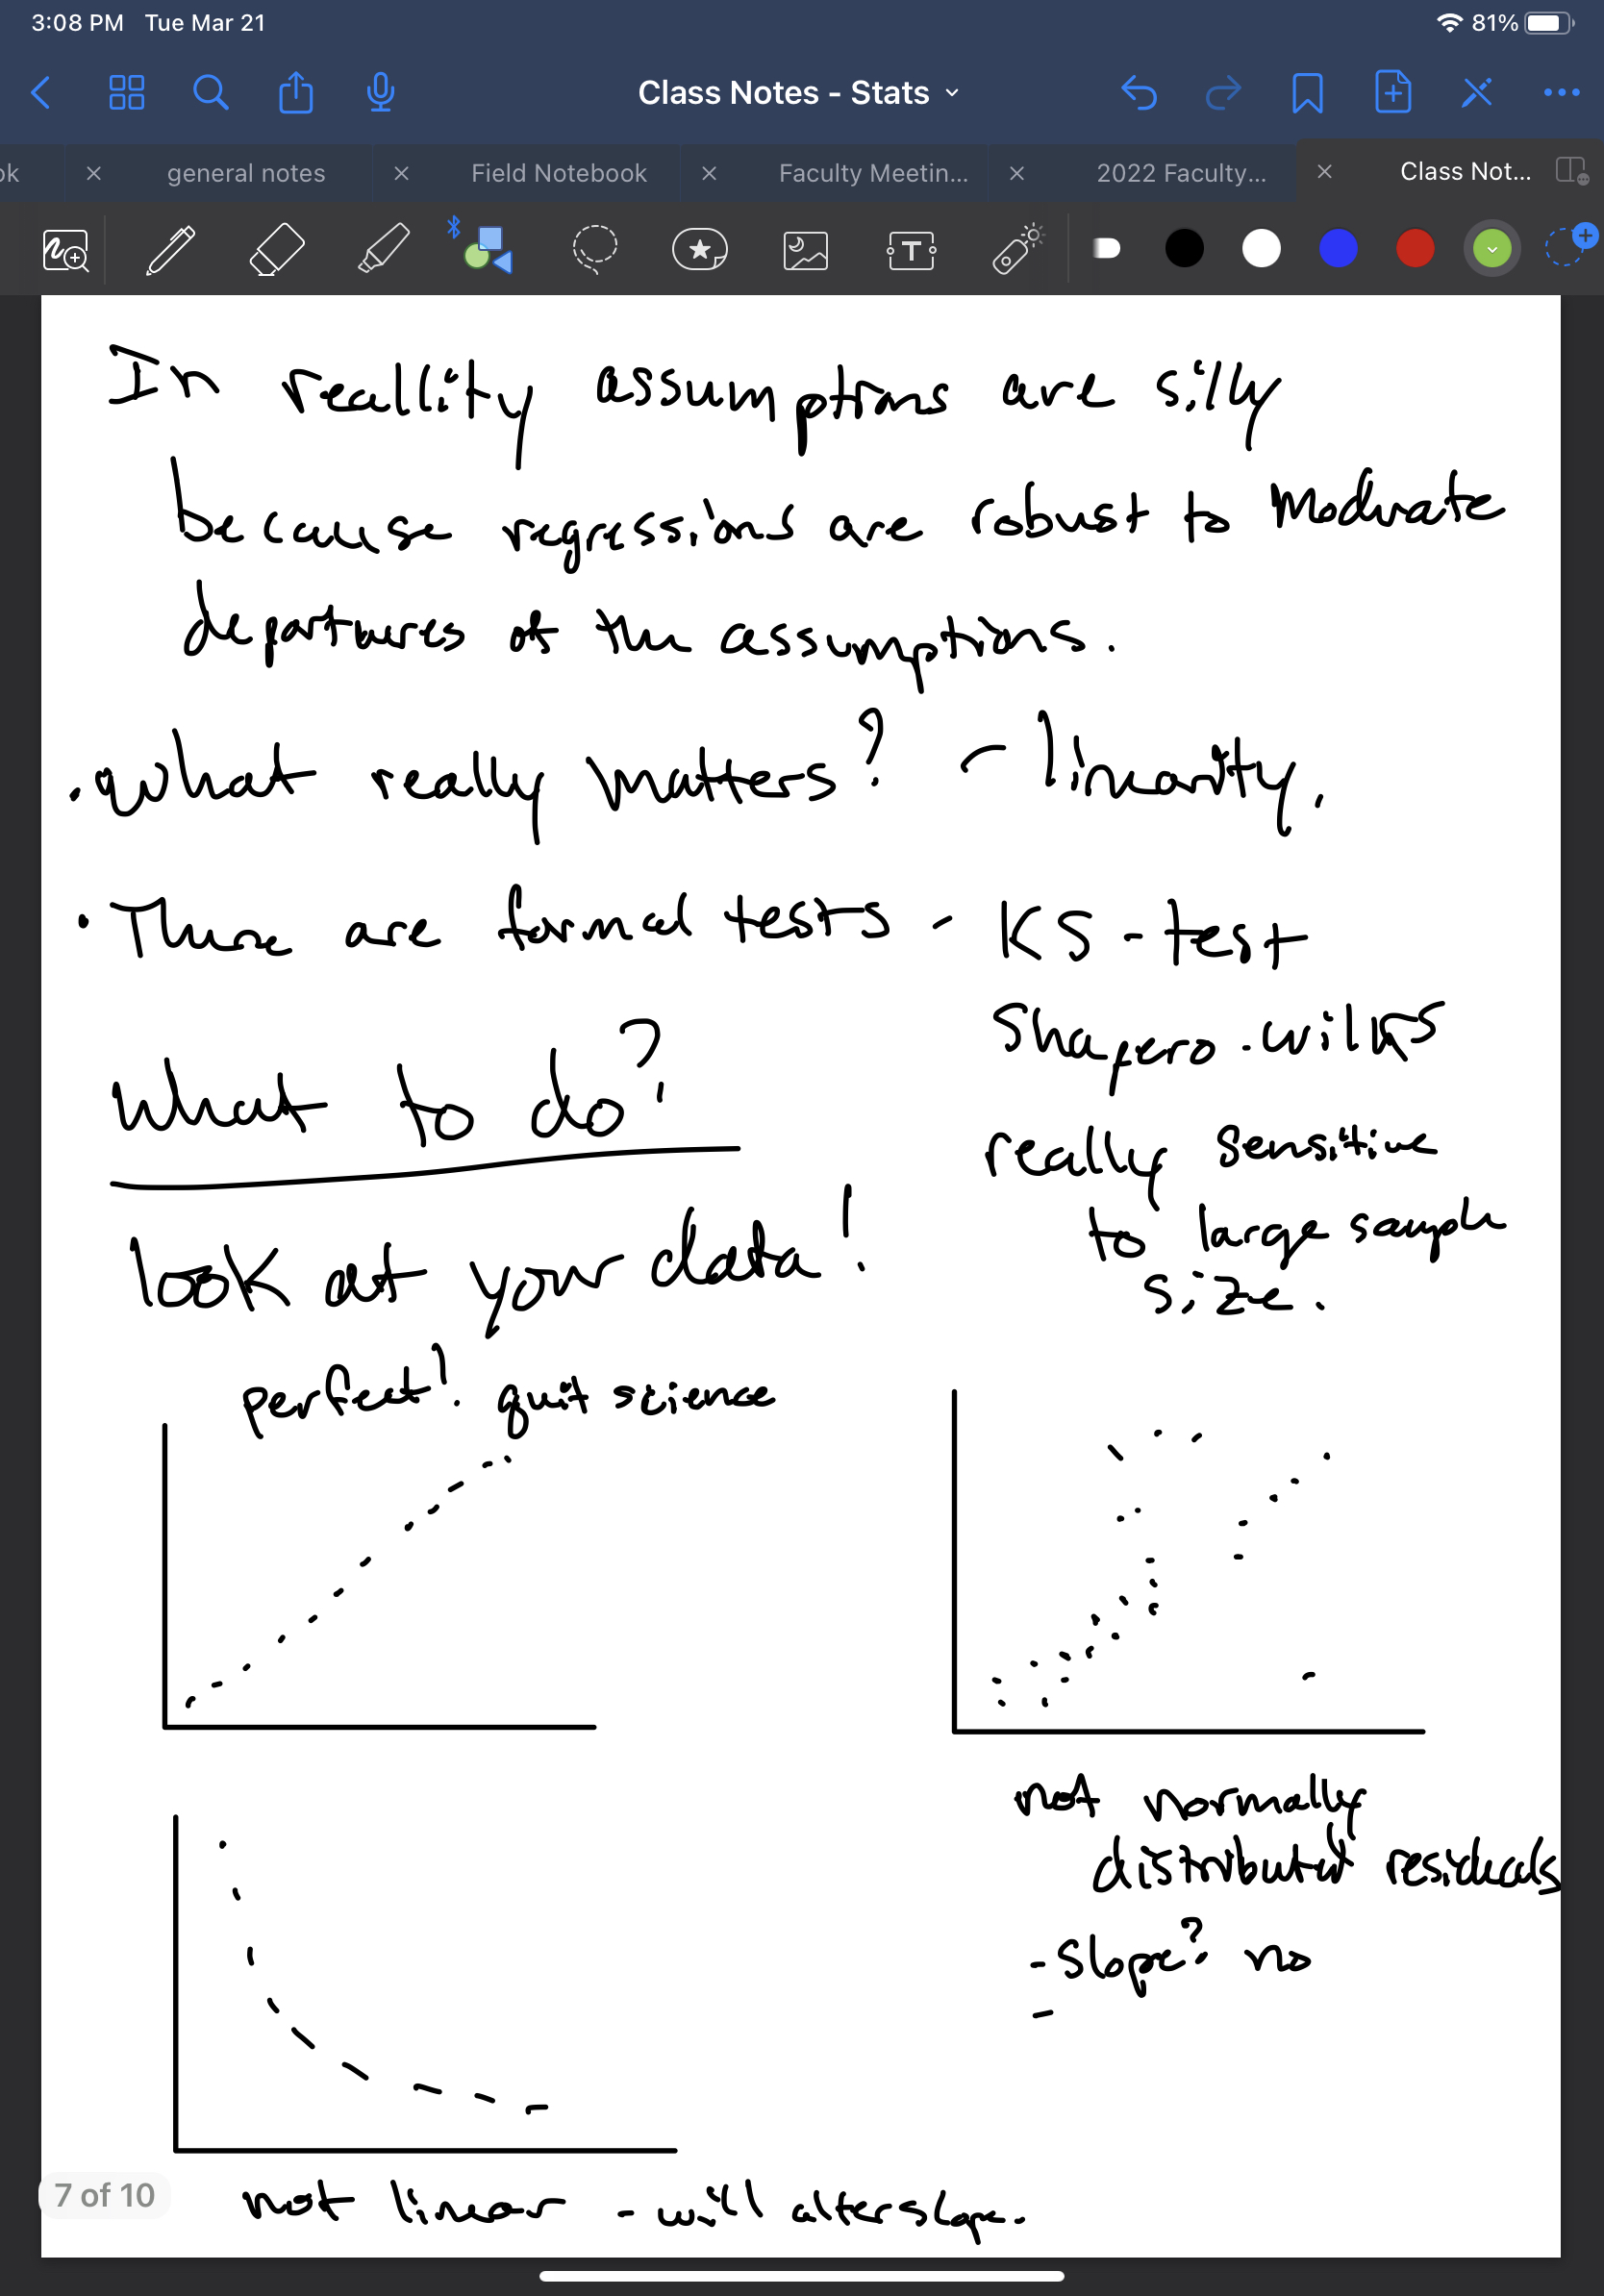 3:08 PM Tue Mar 21
81%
Class Notes - Stats
ok
general notes
Field Notebook
Faculty Meetin...
2022 Faculty...
Class Not...
T
In reallity assumptions are silly
because regressions are robust to moderate
departures of the assumptions.
• What really matters? - linearity.
• There are formal tests - KS-test
Shapero-wilks
What to do?
really sensitive
to large sample
size.
look at your data!
perfect! quit science
not normally
distributed residuals
- slope? no
-
not linear - will alter slope.
7 of 10